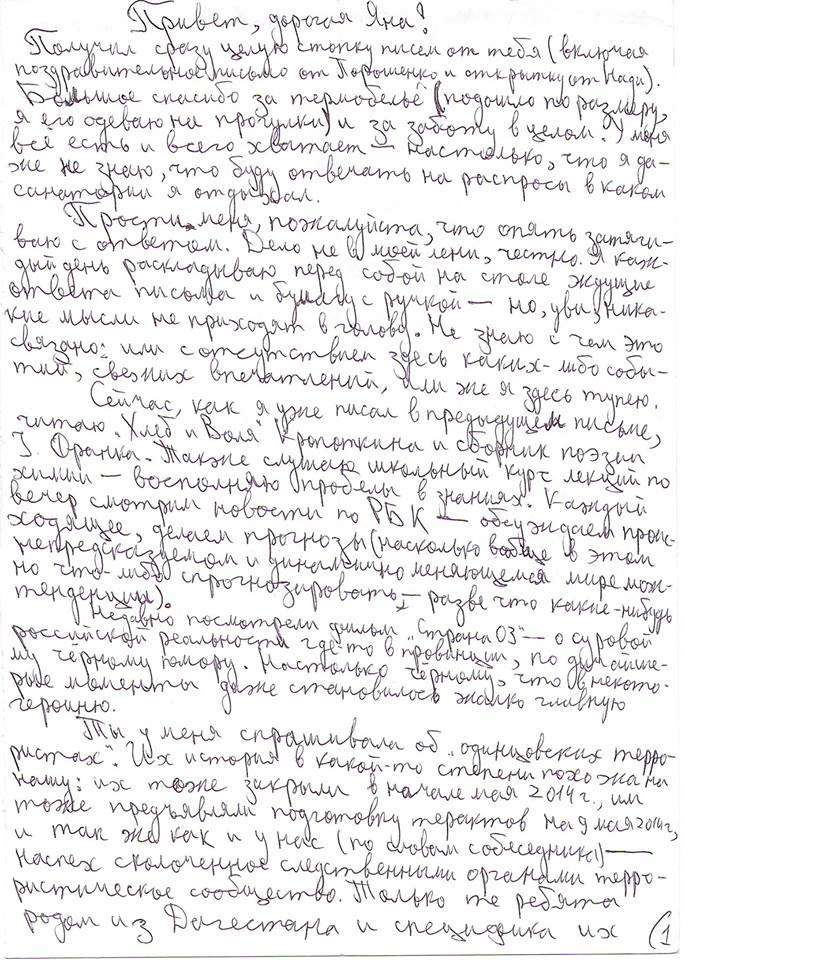 Привет, дорогая Яна!
Получил сразу целую стопку писем от тебя (включая
поздравительное письмо от Порошенко и открытку от Нади).
Большое спасибо за термобельё (подошло по размеру,
я его одеваю на прогулки) и за заботу в целом. У меня
всё есть и всего хватает — настолько, что я да-
же не знаю, что буду отвечать на распросы в каком
санатории я отдыхал.
Прости меня, пожалуйста, что опять затяги-
ваю с ответом. Дело не в моей лени, честно. Я каж-
дый день раскладываю перед собой на столе ждущие
ответа письма и бумагу с ручкой — но, увы, ника-
кие мысли не приходят в голову. Не знаю с чем это
связано: или с отсутствием здесь каких-либо собы-
тий, свежих впечатлений, или же я здесь тупею.
Сейчас, как я уже писал в предыдущем письме,
читаю „Хлеб и Воля" Кропоткина и сборник поэзии
І. Франка. Также слушаю школьный курс лекций по
химии — восполняю пробелы в знаниях. Каждый
вечер смотрим новости по РБК — обсуждаем прои-
ходящее, делаем прогнозы (насколько вообще в этом
непредсказуемом и динамично меняющемся мире мож-
но что-либо спрогнозировать — разве что какие-нибудь
тенденции).
Недавно посмотрели фильм „Страна 03" — о суровой
российской реальности где-то в провинции, по
му чёрному юмору. Настолько чёрному, что в некото-
рые моменты даже становилось жалко главную
героиню.
Ты у меня спрашивала об „одинцовских терро-
ристах". Их история в какой-то степени похожа на
нашу: их тоже закрыли в начале мая 2014 г., им
тоже предъявляли подготовку терактов на 9 мая 2014 г,
и так же как и у нас (по словам собеседника) —
наспех сколоченное следственными органами терро-
ристическое сообщество. Только те ребята
родом из Дагестана и специфика их (1